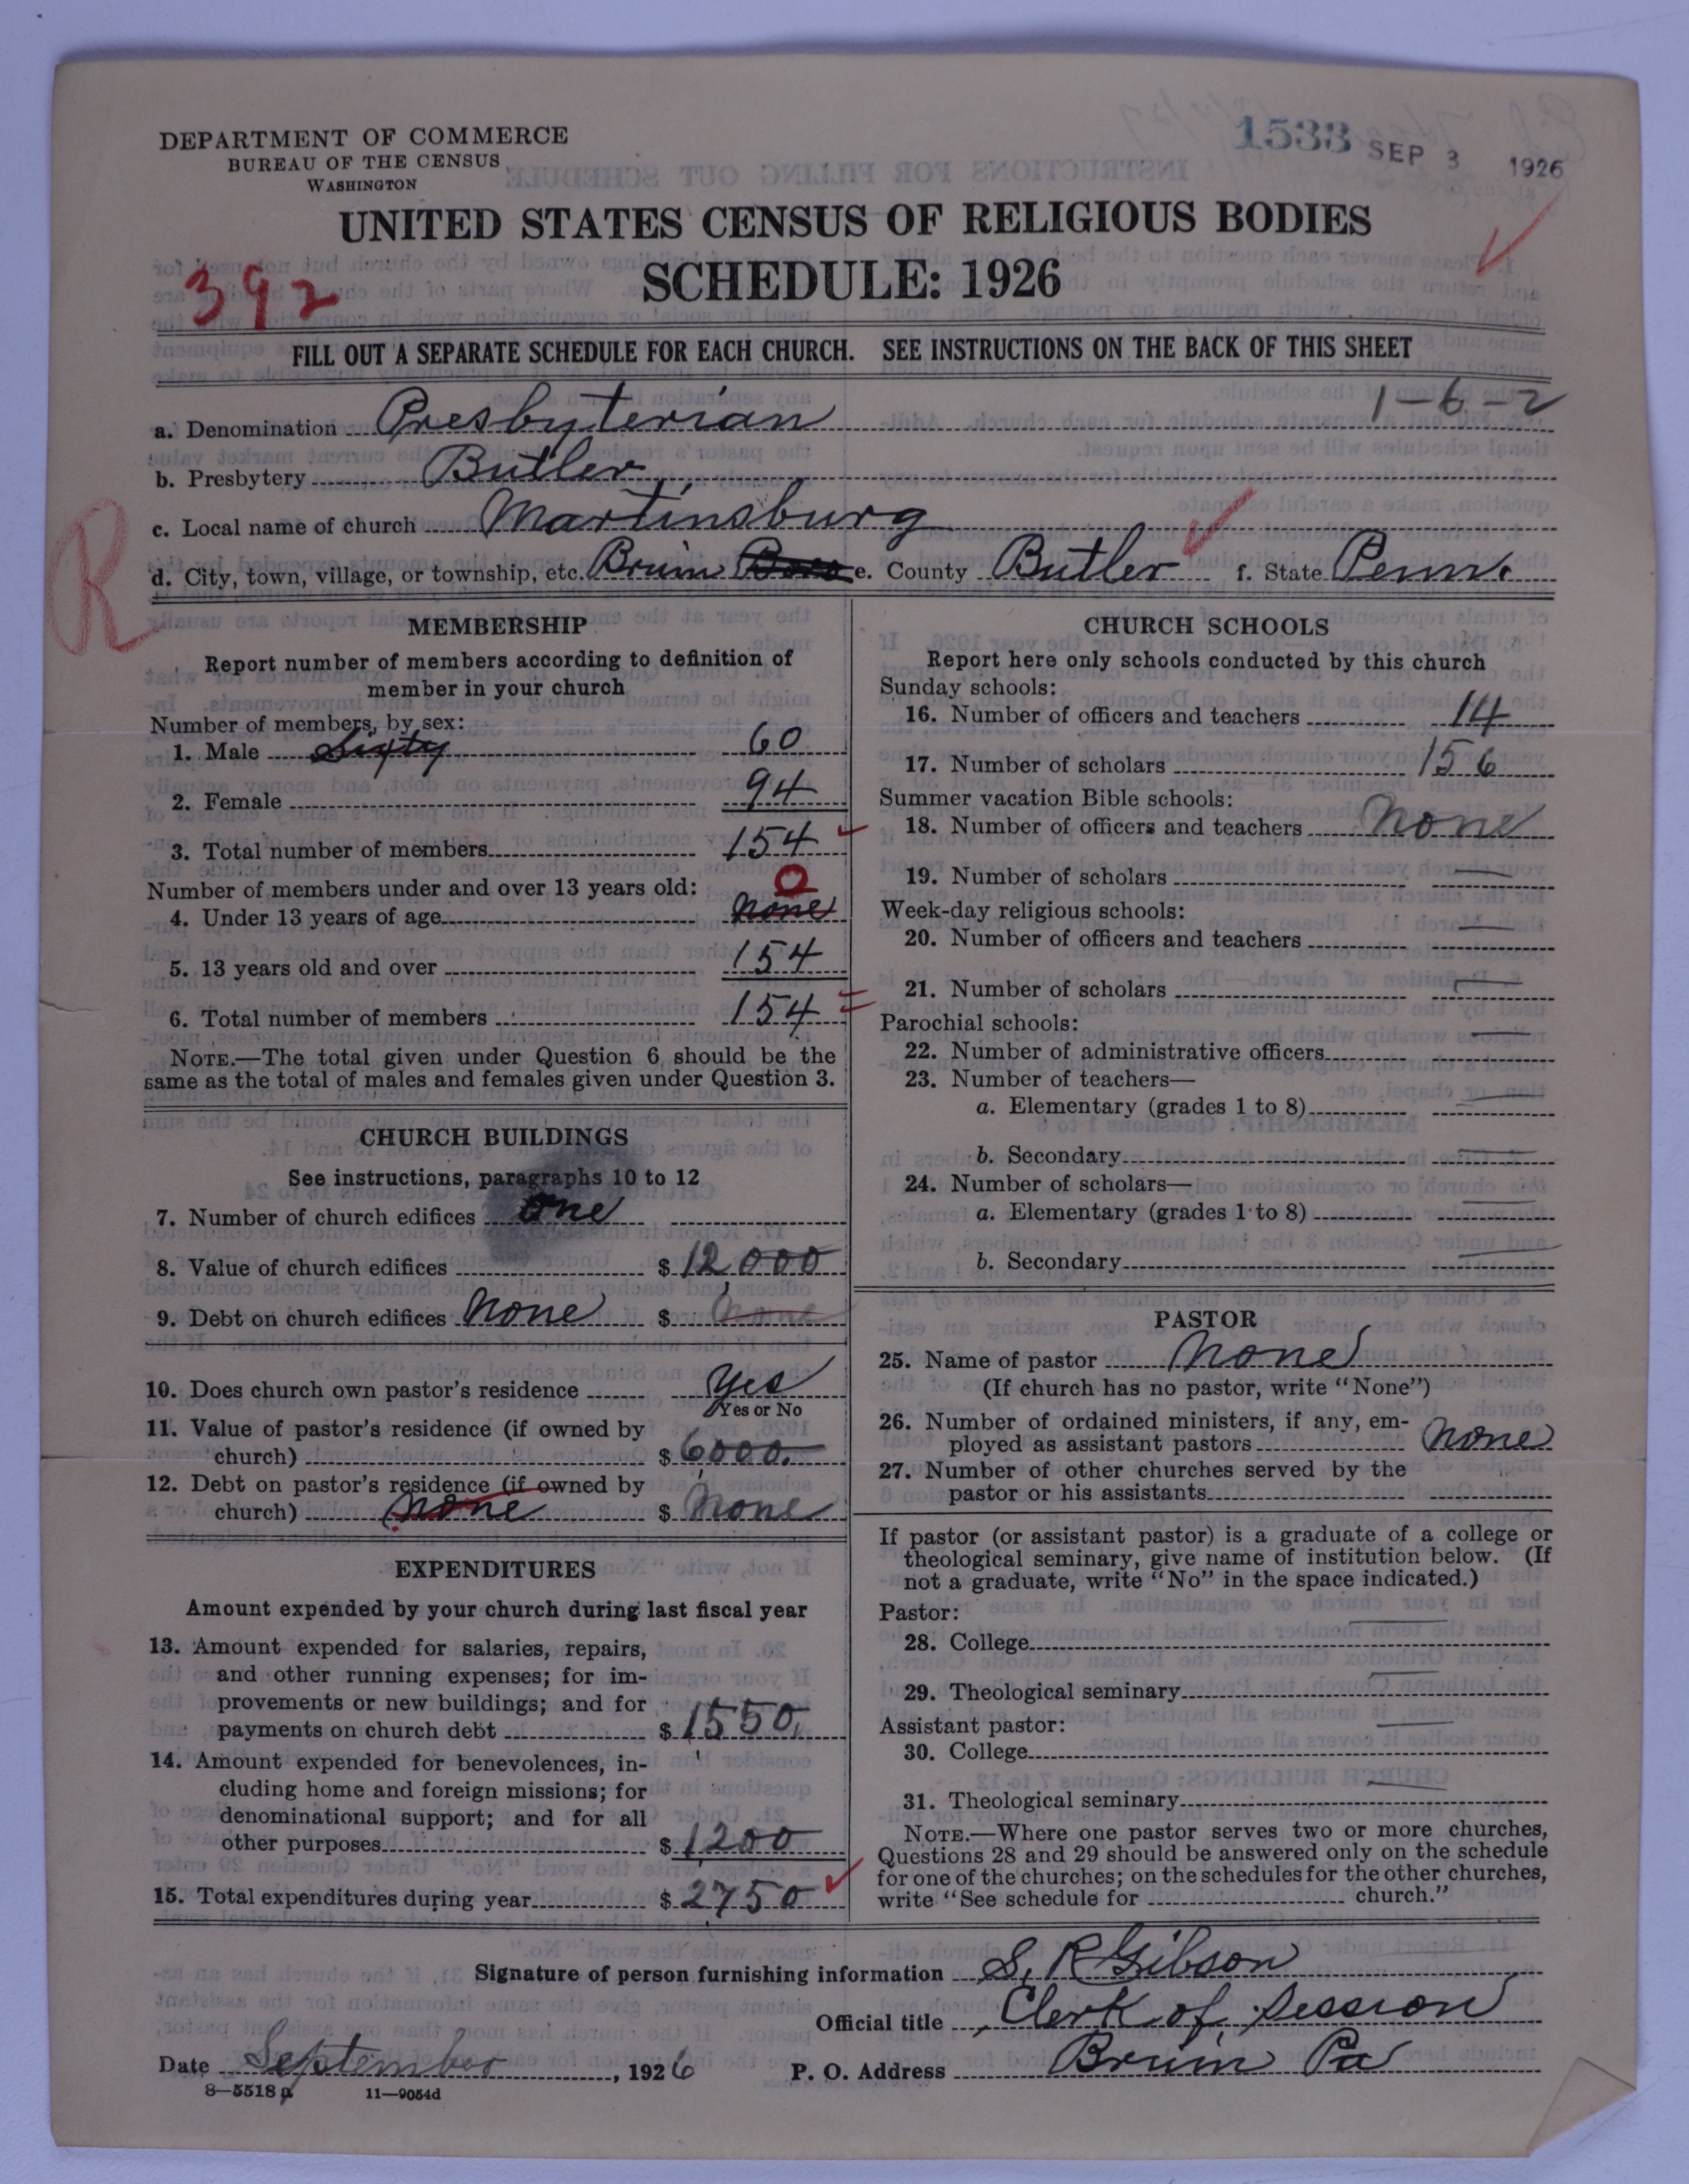 DEPARTMENT OF COMMERCE
BUREAU OF THE CENSUS
WASHINGTON
1533 SEP 3 1926
UNITED STATES CENSUS OF RELIGIOUS BODIES
SCHEDULE: 1926
392
FILL OUT A SEPARATE SCHEDULE FOR EACH CHURCH. SEE INSTRUCTIONS ON THE BACK OF THIS SHEET
1-6-2
a. Denomination Presbyterian
b. Presbytery Butler
c. Local name of church Martinsburg
R
d. City, town, village, or township, etc. Bruin Boro e. County Butler f. State Penn.
MEMBERSHIP
Report number of members according to definition of
member in your church
Number of members, by sex:
1. Male Sixty 60
2. Female 94
3. Total number of members 154
Number of members under and over 13 years old: 0
4. Under 13 years of age None
5. 13 years old and over 154
6. Total number of members 154
NOTE.—The total given under Question 6 should be the
same as the total of males and females given under Question 3.
CHURCH BUILDINGS
See instructions, paragraphs 10 to 12
7. Number of church edifices One
8. Value of church edifices $ 12,000
9. Debt on church edifices None $ None
10. Does church own pastor's residence Yes
Yes or No
11. Value of pastor's residence (if owned by
church) $ 6000.
12. Debt on pastor's residence (if owned by
church) None $ None
EXPENDITURES
Amount expended by your church during last fiscal year
13. Amount expended for salaries, repairs,
and other running expenses; for im-
provements or new buildings; and for
payments on church debt $ 1550,
14. Amount expended for benevolences, in-
cluding home and foreign missions; for
denominational support; and for all
other purposes $ 1200
15. Total expenditures during year $ 2750
CHURCH SCHOOLS
Report here only schools conducted by this church
Sunday schools:
16. Number of officers and teachers 14
17. Number of scholars 156
Summer vacation Bible schools:
18. Number of officers and teachers None
19. Number of scholars —
Week-day religious schools:
20. Number of officers and teachers —
21. Number of scholars —
Parochial schools:
22. Number of administrative officers —
23. Number of teachers—
a. Elementary (grades 1 to 8) —
b. Secondary —
24. Number of scholars—
a. Elementary (grades 1 to 8) —
b. Secondary —
PASTOR
25. Name of pastor None
(If church has no pastor, write "None")
26. Number of ordained ministers, if any, em-
ployed as assistant pastors None
27. Number of other churches served by the
pastor or his assistants
If pastor (or assistant pastor) is a graduate of a college or
theological seminary, give name of institution below. (If
not a graduate, write "No" in the space indicated.)
Pastor:
28. College —
29. Theological seminary —
Assistant pastor:
30. College —
31. Theological seminary —
NOTE.—Where one pastor serves two or more churches,
Questions 28 and 29 should be answered only on the schedule
for one of the churches; on the schedules for the other churches,
write "See schedule for church."
Signature of person furnishing information S. R Gibson
Official title Clerk of Session
Date September, 1926 P. O. Address Bruin Pa
8—5518 a 11—9054d